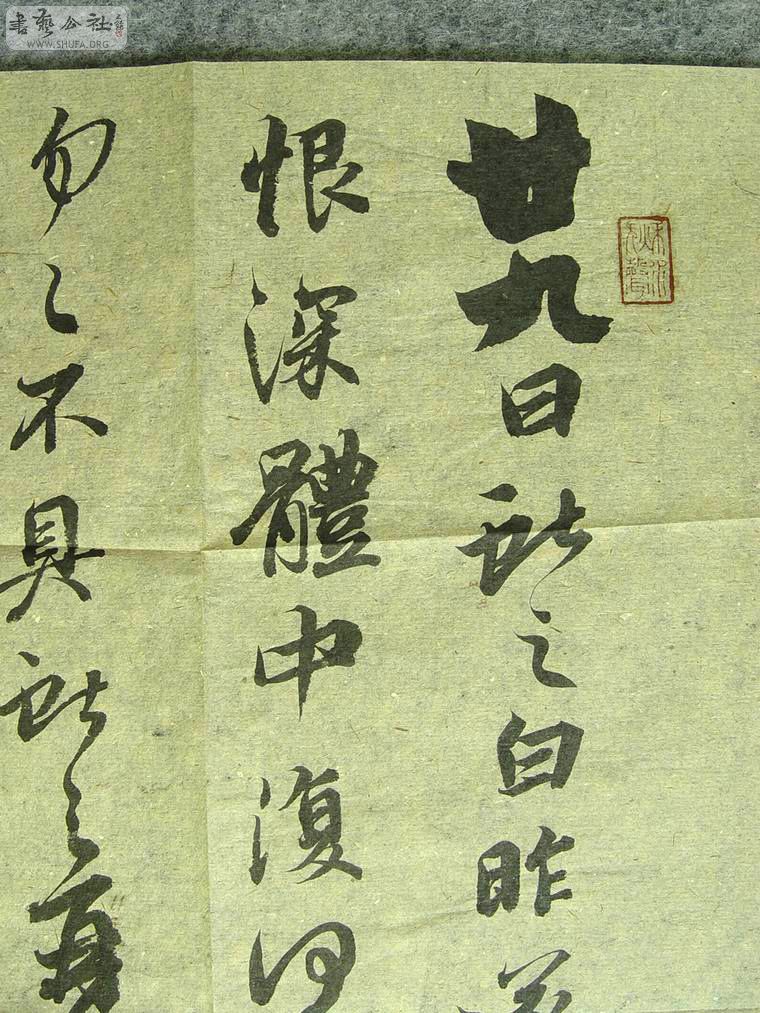 書藝公社
WWW.SHUFA.ORG
廿九日獻之白昨
恨深體中復何
匆〻不具獻之再